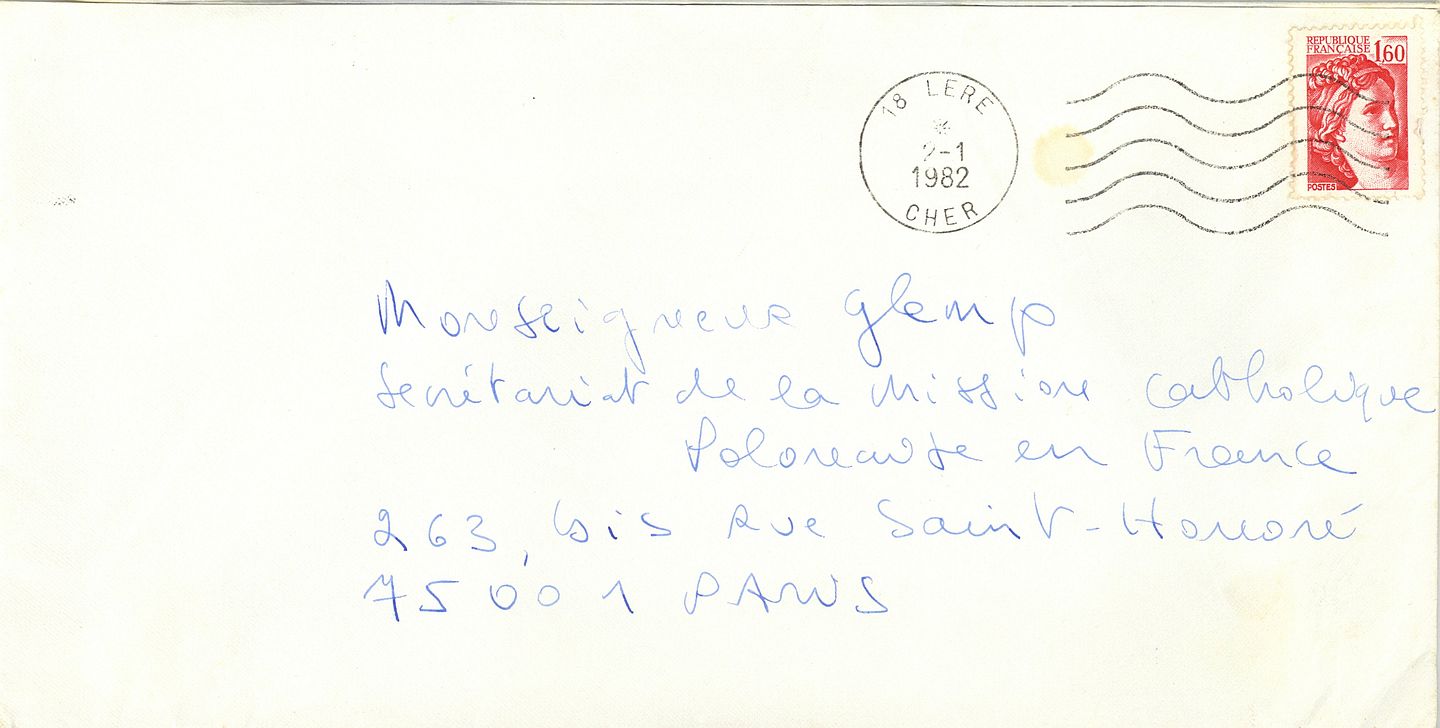 REPUBLIQUE
FRANÇAISE 1,60
POSTES
18 LERE
2-1
1982
CHER
Monseigneur Glemp
Secrétariat de la Mission Catholique
Polonaise en France
263, bis Rue Saint-Honoré
75001 PARIS